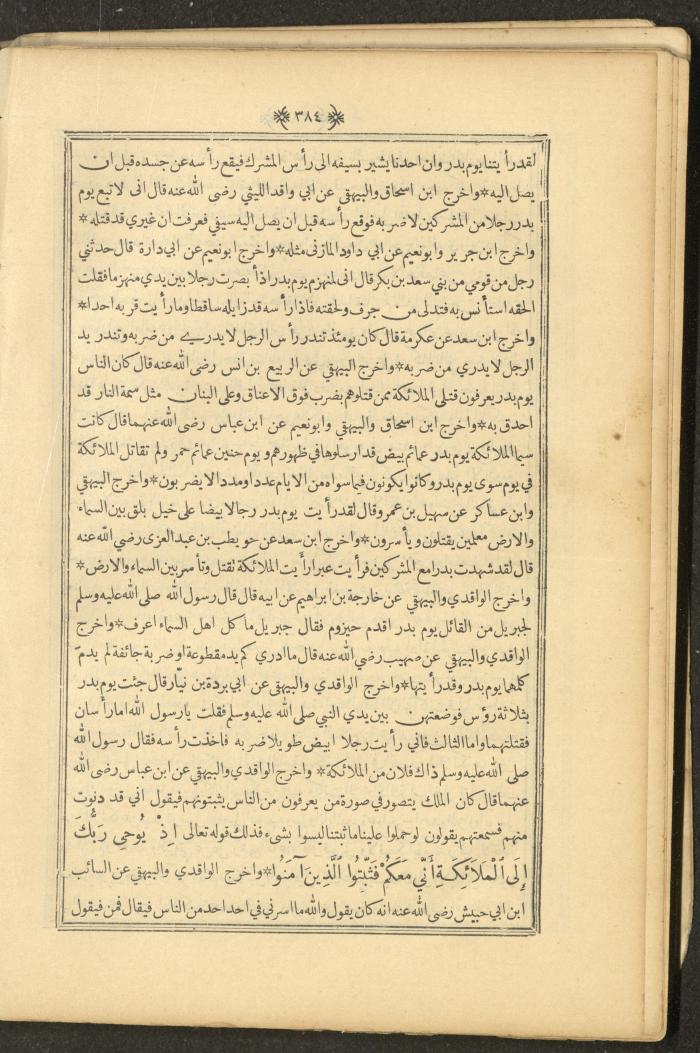 ٣٨٤
لقد رأيتنا يوم بدر وان احدنا يشير بسيفه الى رأس المشرك فيقع رأسه عن جسده قبل ان
يصل اليه * واخرج ابن اسحاق والبيهقي عن ابي واقد الليثي رضى الله عنه قال انى لاتبع يوم
بدر رجلا من المشركين لاضربه فوقع رأسه قبل ان يصل اليه سيفي فعرفت ان غيري قد قتله *
واخرج ابن جرير وابونعيم عن ابي داود المازنى مثله * واخرج ابونعيم عن ابي دارة قال حدثنى
رجل من قومي من بني سعد بن بكر قال انى لمنهزم يوم بدر اذ أبصرت رجلا بين يدي منهزما فقلت
الحقه استأنس به فتدلى من جرف ولحقته فاذا رأسه قد زايله ساقطا وما رأيت قربه احدا *
واخرج ابن سعد عن عكرمة قال كان يومئذ تندر رأس الرجل لا يدرے من ضربه وتندر يد
الرجل لا يدري من ضربه * واخرج البيهقي عن الربيع بن انس رضى الله عنه قال كان الناس
يوم بدر يعرفون قتلى الملائكة ممن قتلوهم بضرب فوق الاعناق وعلى البنان مثل سمة النار قد
احدق به * واخرج ابن اسحاق والبيهقي وابونعيم عن ابن عباس رضى الله عنهما قال كانت
سيما الملائكة يوم بدر عمائم بيض قد ارسلوها في ظهورهم ويوم حنين عمائم حمر ولم تقاتل الملائكة
في يوم سوى يوم بدر وكانوا يكونون فيما سواه من الايام عددا ومددا لا يضربون * واخرج البيهقي
وابن عساكر عن سهيل بن عمرو قال لقد رأيت يوم بدر رجالا بيضا على خيل بلق بين السماء
والارض معلمين يقتلون ويأسرون * واخرج ابن سعد عن حويطب بن عبد العزى رضى الله عنه
قال لقد شهدت بدرا مع المشركين فرأيت عبرا رأيت الملائكة تقتل وتأسر بين السماء والارض *
واخرج الواقدي والبيهقي عن خارجة بن ابراهيم عن ابيه قال قال رسول الله صلى الله عليه وسلم
لجبريل من القائل يوم بدر اقدم حيزوم فقال جبريل ما كل اهل السماء اعرف * واخرج
الواقدي والبيهقي عن صهيب رضى الله عنه قال ما ادري كم يد مقطوعة او ضربة جائفة لم يدمّ
كلمها يوم بدر وقد رأيتها * واخرج الواقدي والبيهقي عن ابي بردة بن نيّار قال جئت يوم بدر
بثلاثة رؤس فوضعتهن بين يدي النبي صلى الله عليه وسلم فقلت يا رسول الله اما رأسان
فقتلتهما واما الثالث فاني رأيت رجلا ابيض طويلا ضربه فاخذت رأسه فقال رسول الله
صلى الله عليه وسلم ذاك فلان من الملائكة * واخرج الواقدي والبيهقي عن ابن عباس رضى الله
عنهما قال كان الملك يتصور في صورة من يعرفون من الناس يثبتونهم فيقول اني قد دنوت
منهم فسمعتهم يقولون لو حملوا علينا ما ثبتنا ليسوا بشىء فذلك قوله تعالى اِذْ يُوحِى رَبُّكَ
إِلَى ٱلْمَلَائِكَةِ أَنِّي مَعَكُمْ فَثَبِّتُوا ٱلَّذِينَ آمَنُوا * واخرج الواقدي والبيهقي عن السائب
ابن ابي حبيش رضى الله عنه انه كان يقول والله ما اسرني في احد احد من الناس فيقال فمن فيقول